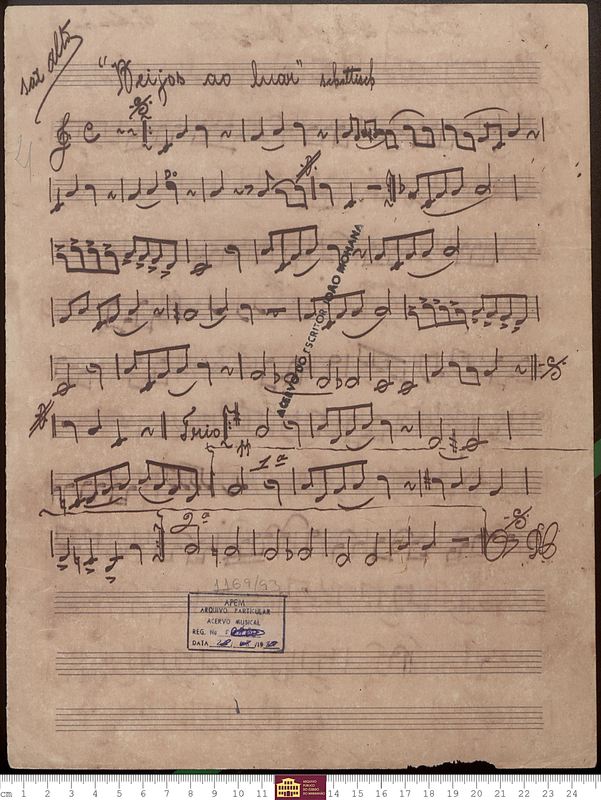 sax alto
"Beijos ao luar" schottisch
ACERVO DO ESCRITOR JOÃO MOHANA
Trio
1ª
2ª
1169/93
APEM
ARQUIVO PARTICULAR
ACERVO MUSICAL
REG. No
DATA
cm 1 2 3 4 5 6 7 8 9 10 11 14 15 16 17 18 19 20 21 22 23 24
ARQUIVO
PÚBLICO
DO ESTADO
DO MARANHÃO